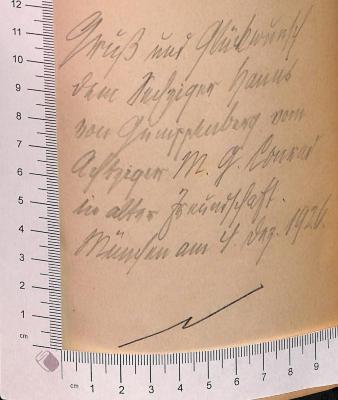 Gruß und Glückwunsch
dem Sechziger Hanns
von Gumppenberg vom
Achtziger M. G. Conrad
in alter Freundschaft.
München am 4. Dez. 1926.
12
11
10
9
8
7
6
5
4
3
2
1
cm
cm 1 2 3 4 5 6 7 8 9